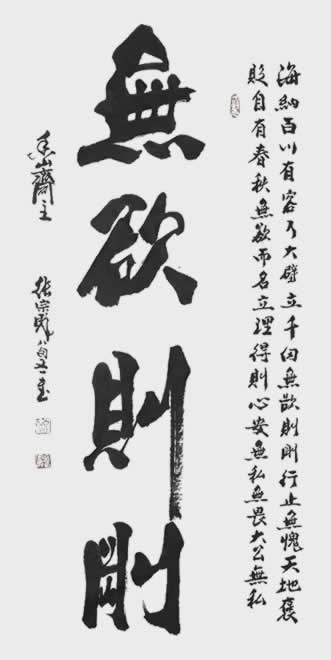 海納百川有容乃大壁立千仞無欲則剛行止無愧天地褒
貶自有春秋無欲而名立理得則心安無私無畏大公無私
無欲則剛
香山齋主